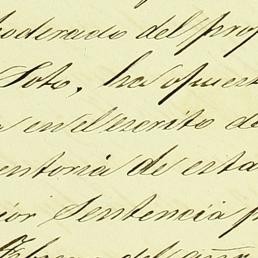 poderado del prop
Soto, ha opuest
en el escrito de
entoria de esta
ior Sentencia p